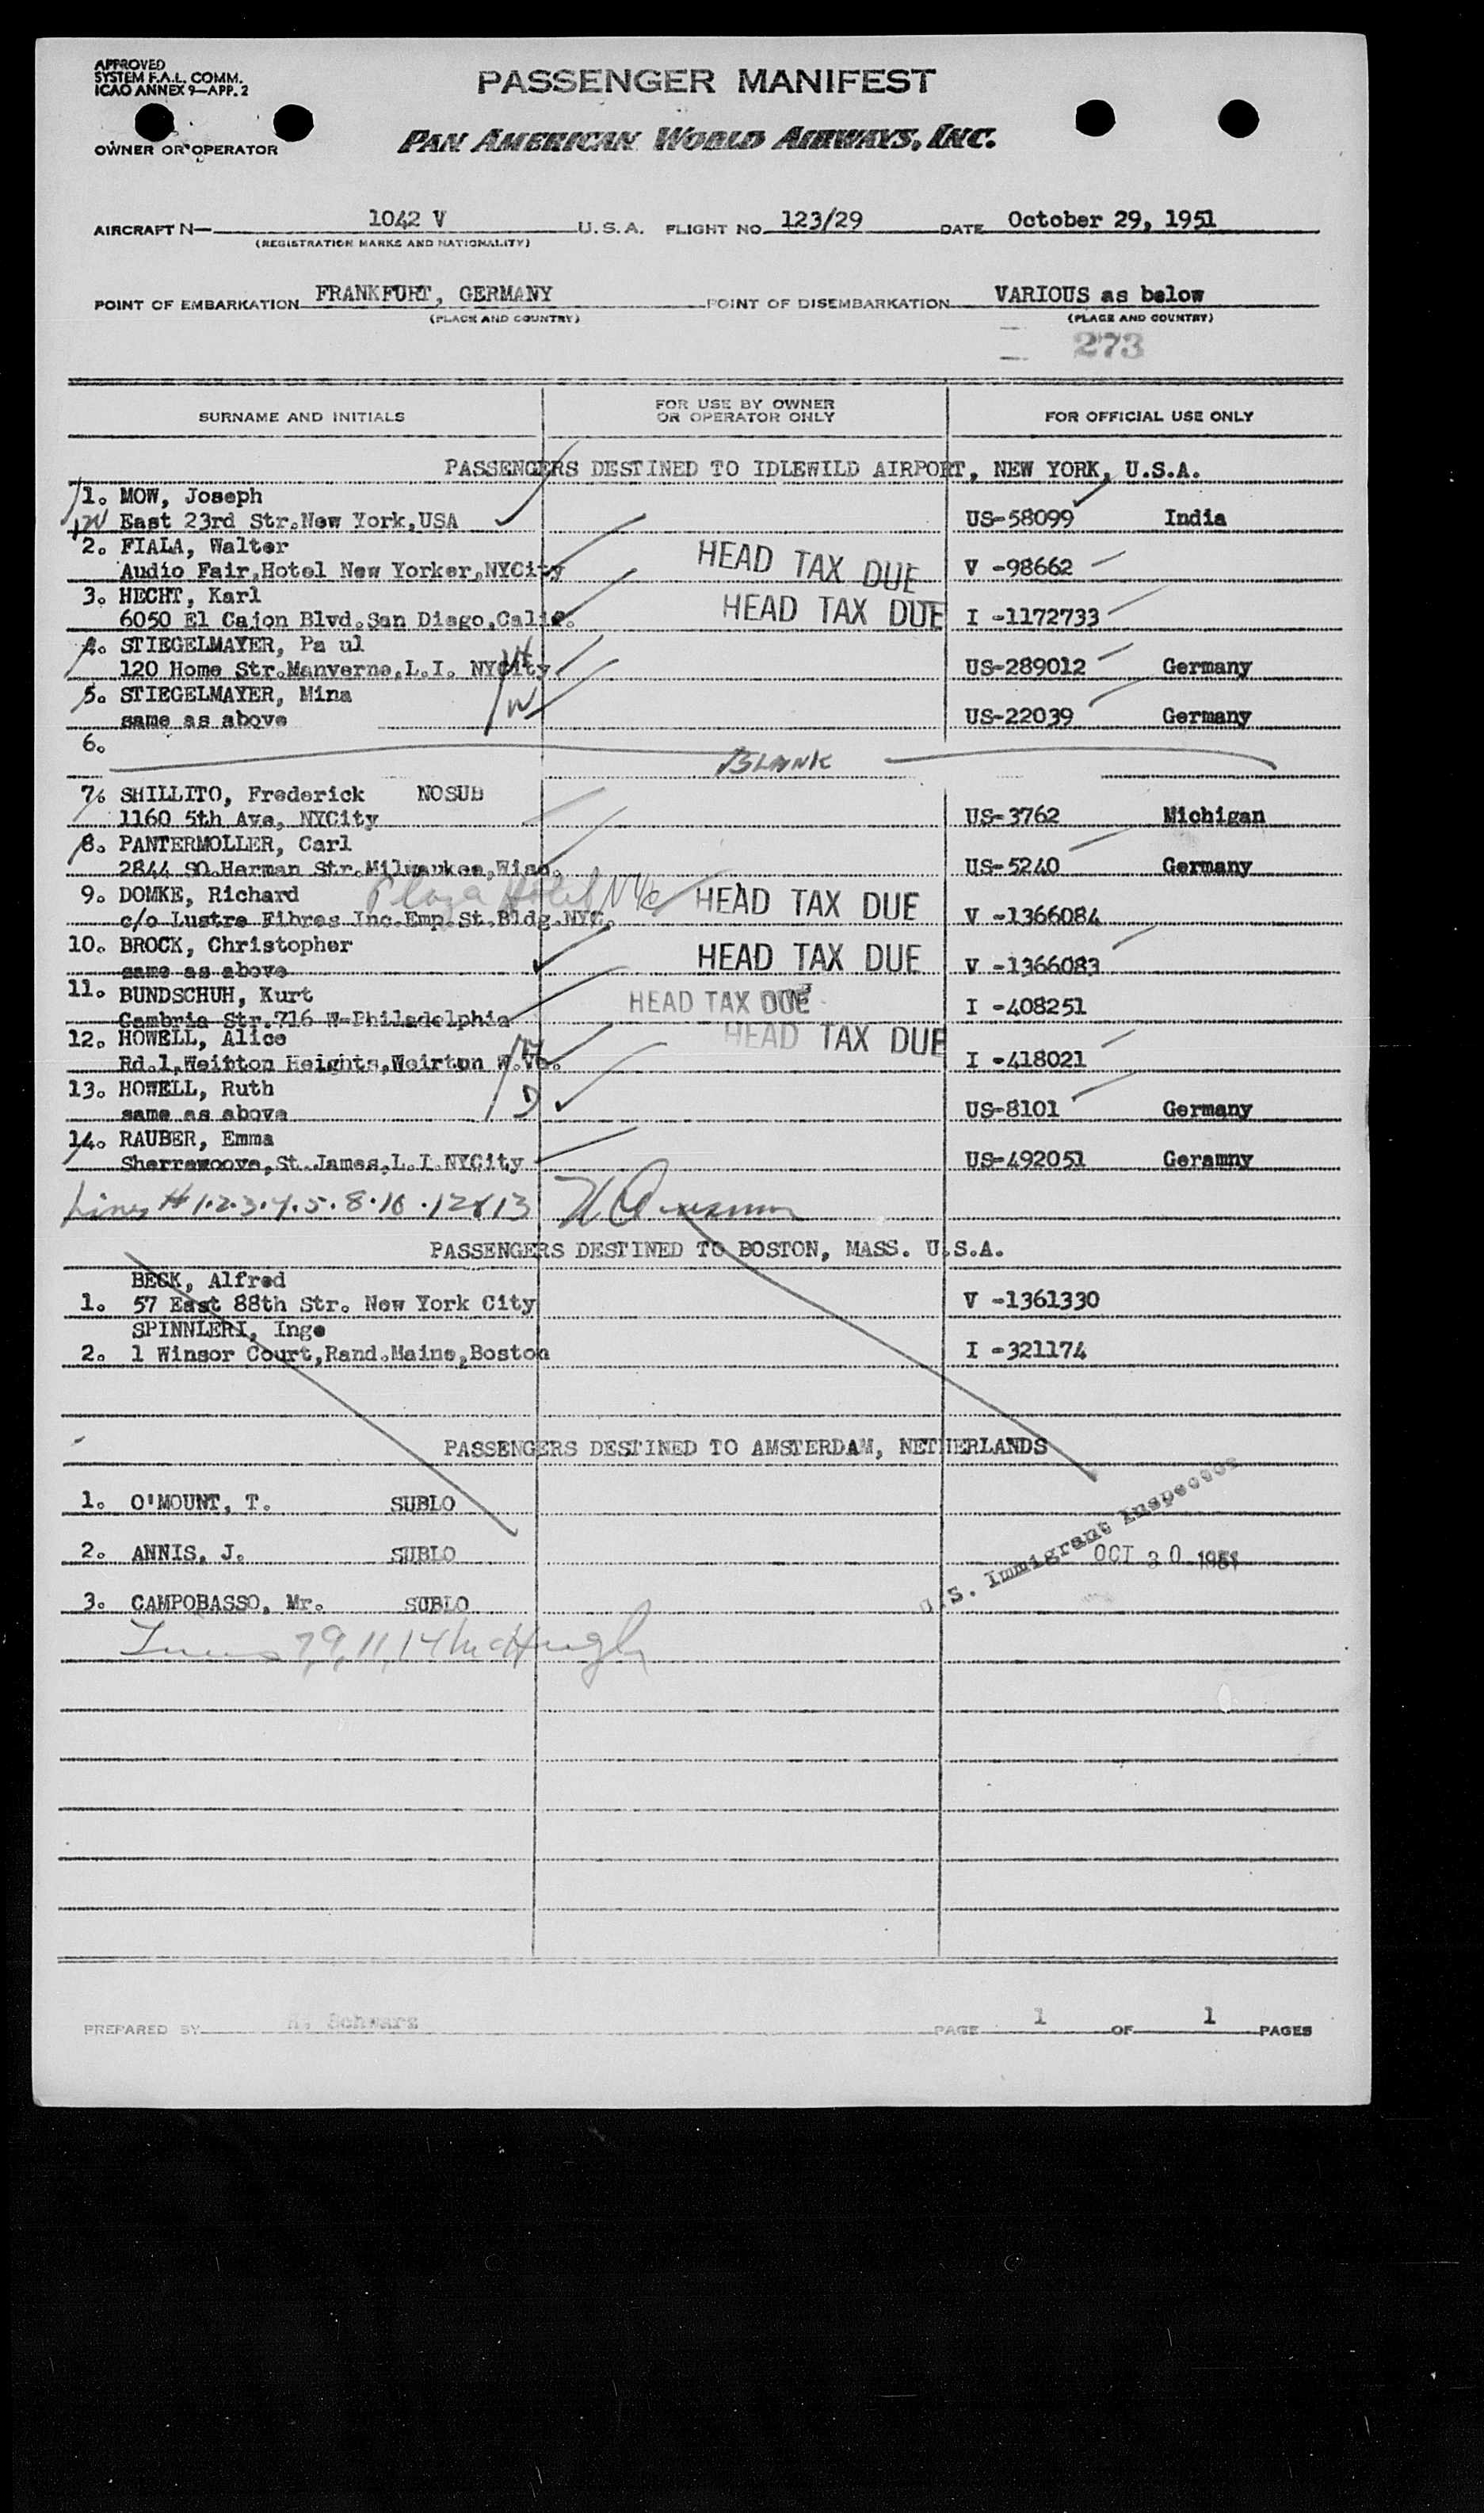 APPROVED
SYSTEM F.A.L. COMM.
ICAO ANNEX 9—APP. 2
PASSENGER MANIFEST
OWNER OR OPERATOR
PAN AMERICAN WORLD AIRWAYS, INC.
AIRCRAFT N— 1042 V U.S.A. FLIGHT NO. 123/29 DATE October 29, 1951
(REGISTRATION MARKS AND NATIONALITY)
POINT OF EMBARKATION FRANKFURT, GERMANY POINT OF DISEMBARKATION VARIOUS as below
(PLACE AND COUNTRY) (PLACE AND COUNTRY)
273
SURNAME AND INITIALS FOR USE BY OWNER OR OPERATOR ONLY FOR OFFICIAL USE ONLY
PASSENGERS DESTINED TO IDLEWILD AIRPORT, NEW YORK, U.S.A.
1. MOW, Joseph
East 23rd Str.New York,USA US-58099 India
2. FIALA, Walter
Audio Fair,Hotel New Yorker,NYCity HEAD TAX DUE V -98662
3. HECHT, Karl
6050 El Cajon Blvd.San Diego,Calif. HEAD TAX DUE I -1172733
4. STIEGELMAYER, Pa ul
120 Home Str.Manverne,L.I. NYCity US-289012 Germany
5. STIEGELMAYER, Mina
same as above W US-22039 Germany
6.
BLANK
7. SHILLITO, Frederick NOSUB
1160 5th Ave, NYCity US-3762 Michigan
8. PANTERMOLLER, Carl
2844 SO.Herman Str.Milwaukee,Wisc. US-5240 Germany
9. DOMKE, Richard Plaza Hotel NYC
c/o Lustre Fibres Inc.Emp.St.Bldg.NYC. HEAD TAX DUE V -1366084
10. BROCK, Christopher
same as above HEAD TAX DUE V -1366083
11. BUNDSCHUH, Kurt
Cambria Str.716 W-Philadelphia HEAD TAX DUE I -408251
12. HOWELL, Alice
Rd.1,Weirton Heights,Weirton W.Va. HEAD TAX DUE I -418021
13. HOWELL, Ruth
same as above D US-8101 Germany
14. RAUBER, Emma
Sherrewoove,St.James,L.I.NYCity US-492051 Geramny
Lines # 1.2.3.4.5.8.10.12&13
PASSENGERS DESTINED TO BOSTON, MASS. U.S.A.
BECK, Alfred
1. 57 East 88th Str. New York City V -1361330
SPINNLERI, Inge
2. 1 Winsor Court,Rand.Maine,Boston I -321174
PASSENGERS DESTINED TO AMSTERDAM, NETHERLANDS
1. O'MOUNT, T. SUBLO
2. ANNIS, J. SUBLO
U.S. Immigrant Inspector
OCT 30 1951
3. CAMPOBASSO, Mr. SUBLO
Lines 7,9,11,14 McHugh
PREPARED BY H. Schwarz PAGE 1 OF 1 PAGES